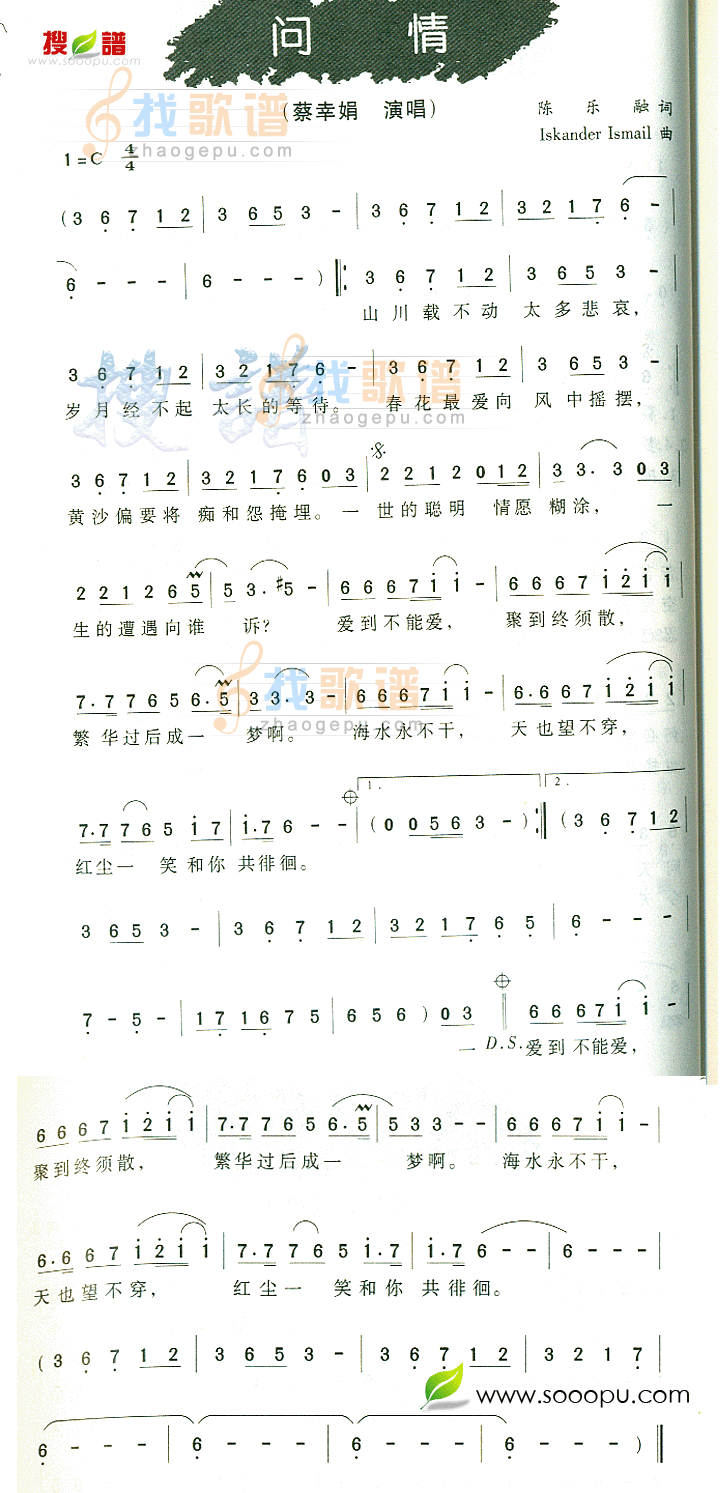 搜譜
www.sooopu.com
问 情
(蔡幸娟 演唱)
陈 乐 融 词
Iskander Ismail 曲
找歌谱
zhaogepu.com
1=C 4/4
(3 6 7 1 2 | 3 6 5 3 - | 3 6 7 1 2 | 3 2 1 7 6 - |
6 - - - | 6 - - - ) ‖: 3 6 7 1 2 | 3 6 5 3 - |
山川载不动 太多悲哀,
3 6 7 1 2 | 3 2 1 7 6 - | 3 6 7 1 2 | 3 6 5 3 - |
岁月经不起 太长的等待。 春花最爱向 风中摇摆,
搜譜
找歌谱
zhaogepu.com
3 6 7 1 2 | 3 2 1 7 6 0 3 | 2 2 1 2 0 1 2 | 3 3· 3 0 3 |
黄沙偏要将 痴和怨掩埋。一 世的聪明 情愿糊涂, 一
2 2 1 2 6 5 5 | 5 3· #5 - | 6 6 6 7 i i - | 6 6 6 7 i 2 i i |
生的遭遇向谁 诉? 爱到不能爱, 聚到终须散,
找歌谱
zhaogepu.com
7·7 7 6 5 6·5 | 3 3·3 - | 6 6 6 7 i i - | 6·6 6 7 i 2 i i |
繁华过后成一 梦啊。 海水永不干, 天也望不穿,
1. 2.
7·7 7 6 5 i 7 | i·7 6 - - | ( 0 0 5 6 3 - ) :‖ (3 6 7 1 2 |
红尘一 笑和你共徘徊。
找歌谱
zhaogepu.com
3 6 5 3 - | 3 6 7 1 2 | 3 2 1 7 6 5 | 6 - - - |
7 - 5 - | 1 7 1 6 7 5 | 6 5 6 ) 0 3 ‖ 6 6 6 7 i i - |
一 D.S. 爱到不能爱,
6 6 6 7 i 2 i i | 7·7 7 6 5 6·5 | 5 3 3 - - | 6 6 6 7 i i - |
聚到终须散, 繁华过后成一 梦啊。 海水永不干,
6·6 6 7 i 2 i i | 7·7 7 6 5 i·7 | i·7 6 - - | 6 - - - |
天也望不穿, 红尘一 笑和你共徘徊。
(3 6 7 1 2 | 3 6 5 3 - | 3 6 7 1 2 | 3 2 1 7 |
www.sooopu.com
6 - - - | 6 - - - | 6 - - - | 6 - - - ) ‖